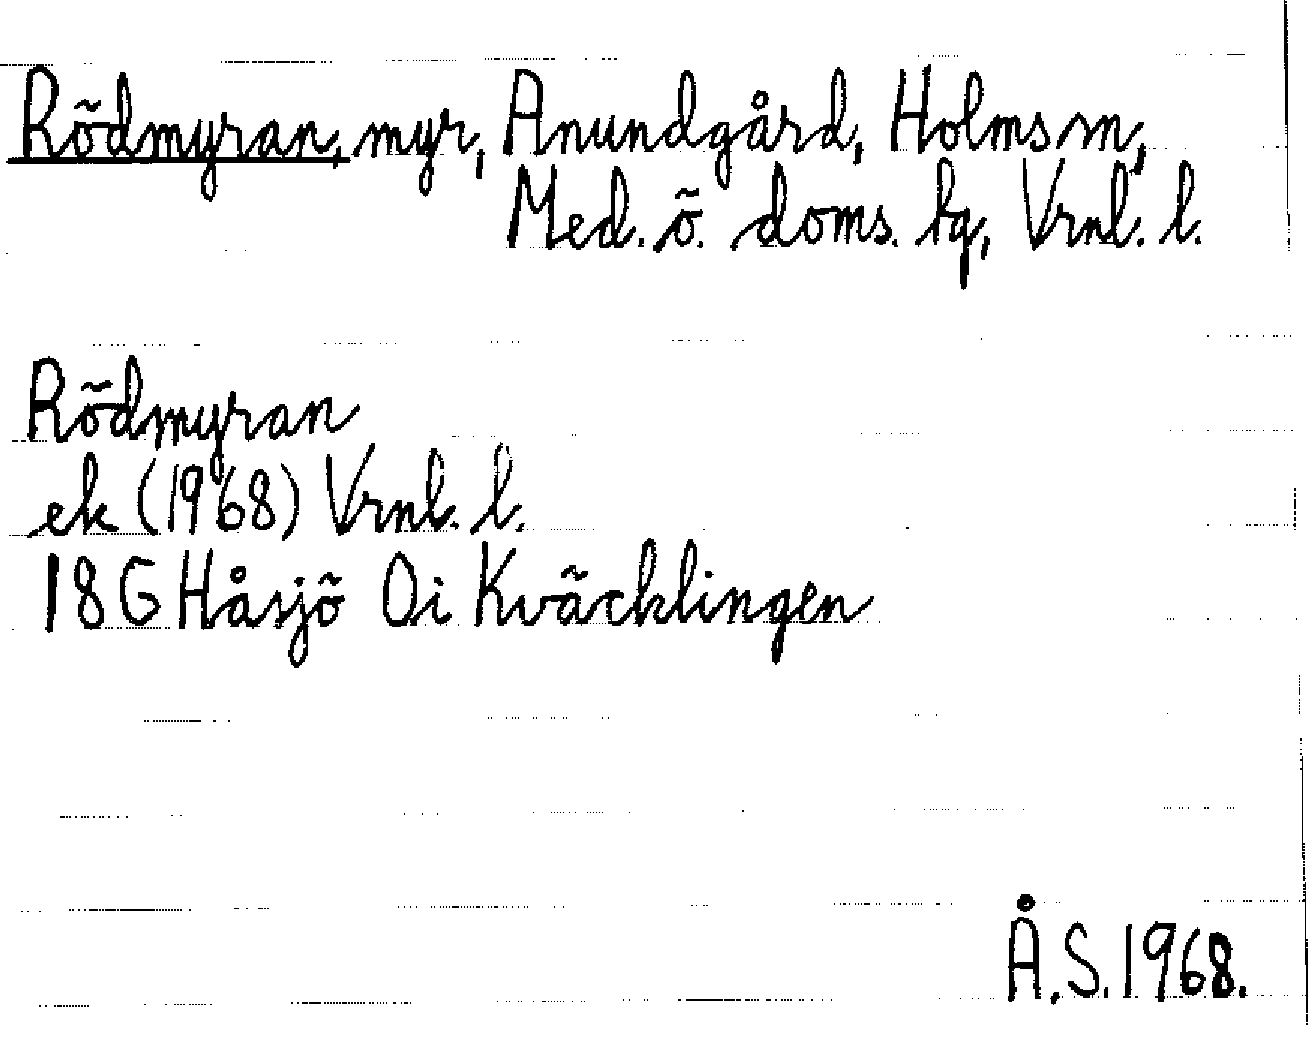 Rödmyran, myr, Anundgård, Holms sn,
Med. ö. doms. tg, Vrnl. l.
Rödmyran
ek (1968) Vrnl. l.
18G Håsjö 0i Kväcklingen
Å.S. 1968.